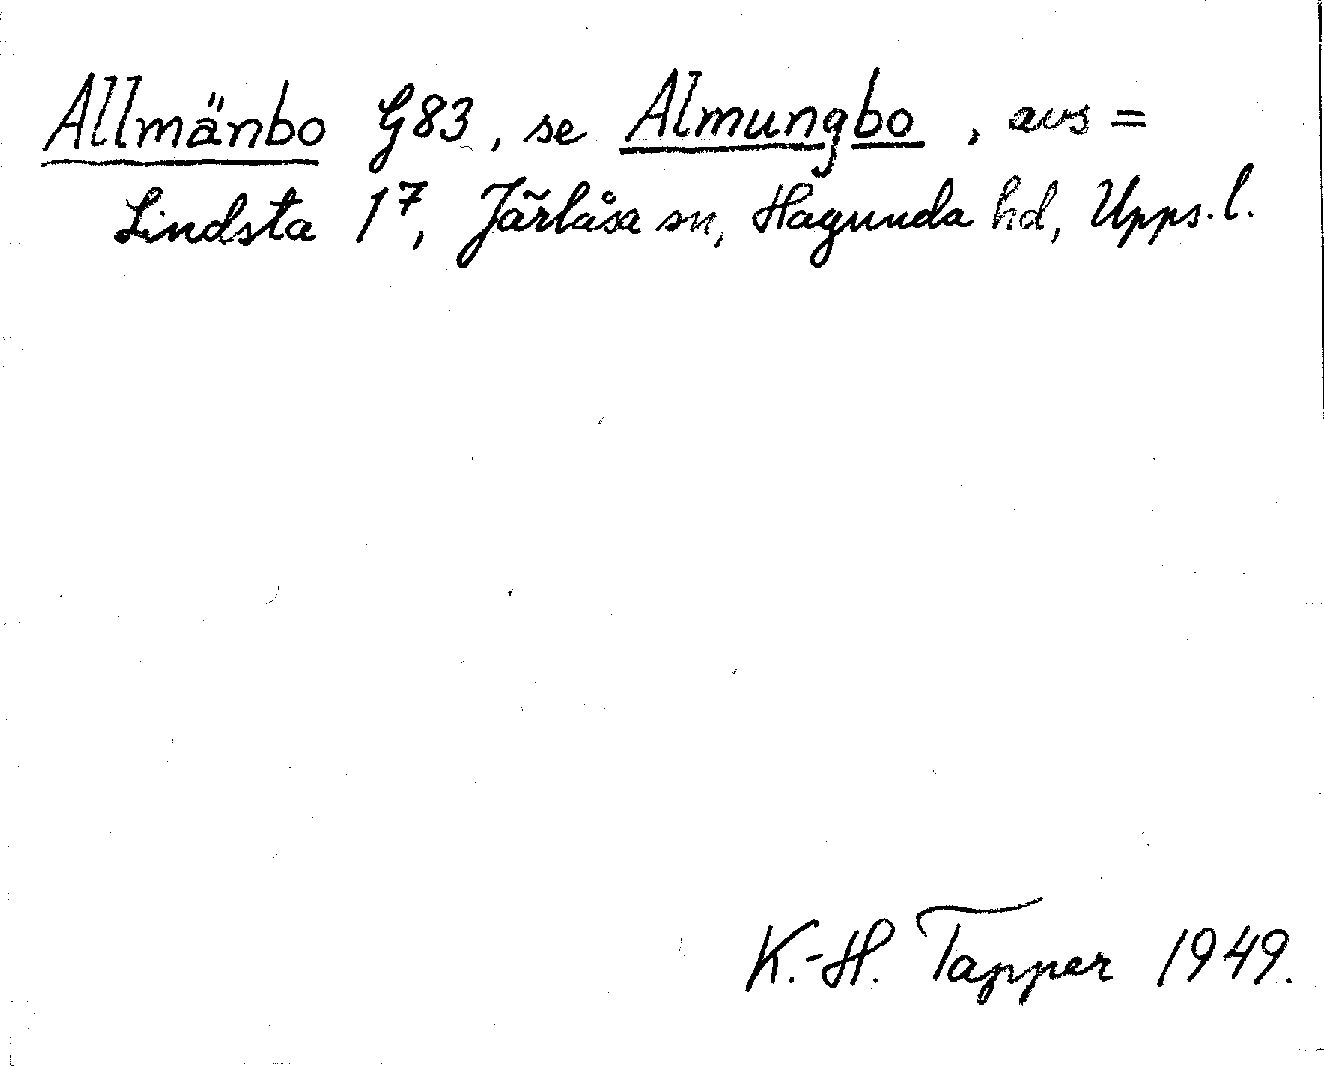 Allmänbo G83, se Almungbo, avs =
Lindsta 1⁷, Järlåsa sn, Hagunda hd, Upps. l.
K.-H. Tapper 1949.